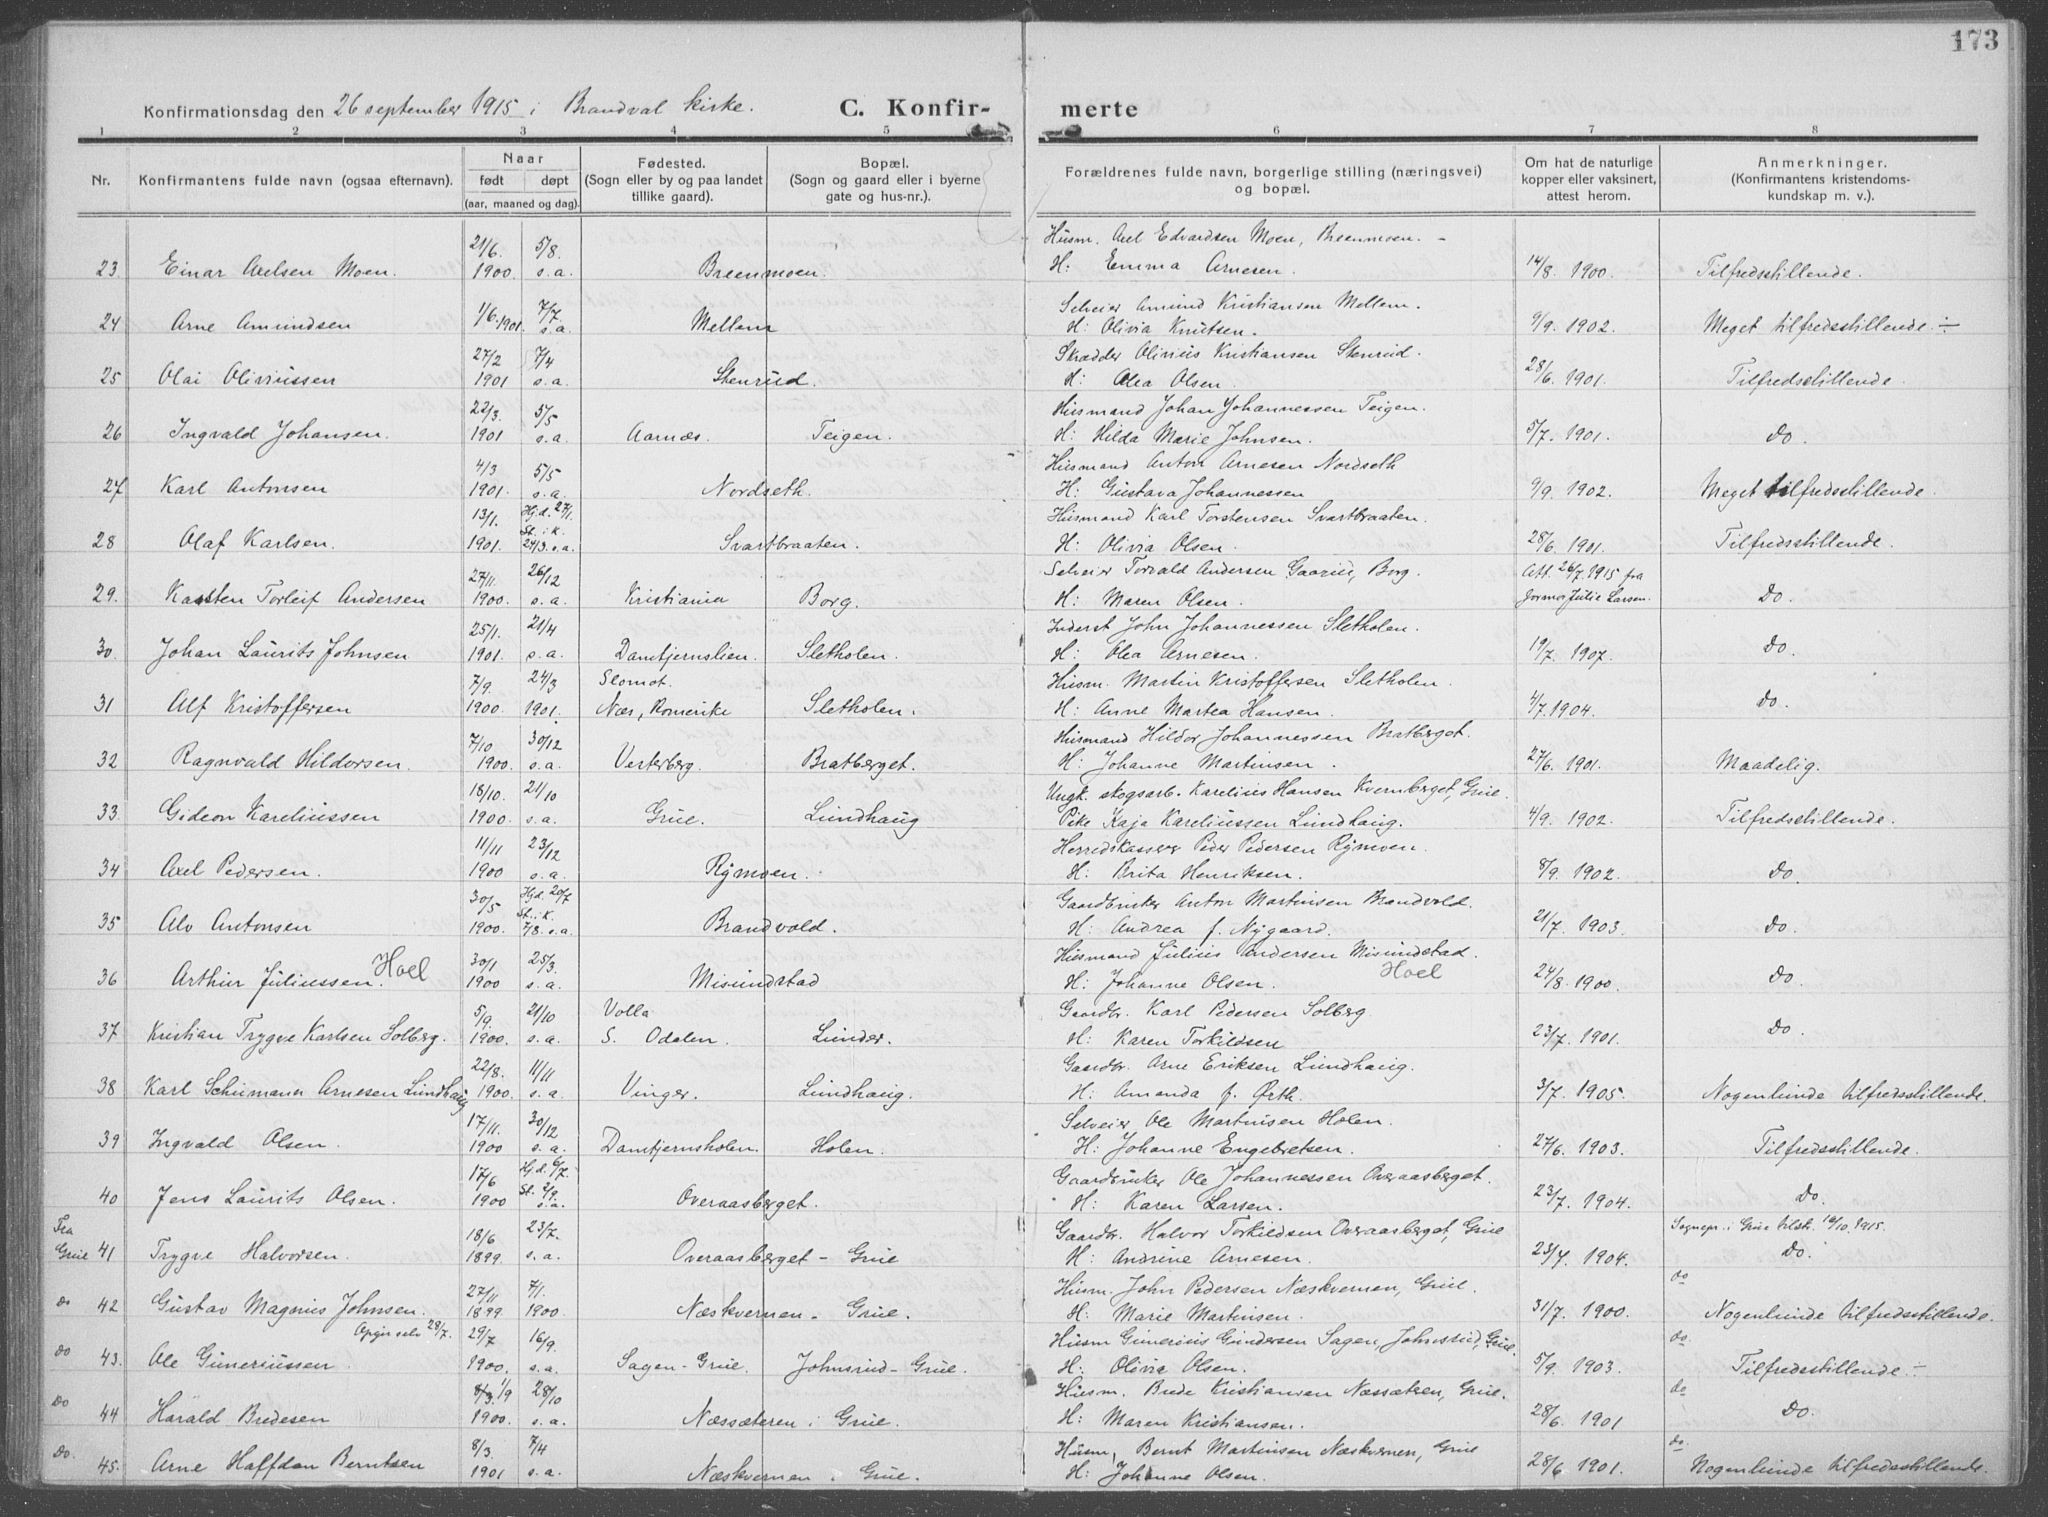 173
Konfirmationsdag den 26 september 1915 i Brandval kirke. C. Konfir- merte
1 2 3 4 5 6 7 8
Nr. Konfirmantens fulde navn (ogsaa efternavn). Naar født døpt (aar, maaned og dag). Fødested. (Sogn eller by og paa landet tillike gaard). Bopæl. (Sogn og gaard eller i byerne gate og hus-nr.). Forældrenes fulde navn, borgerlige stilling (næringsvei) og bopæl. Om hat de naturlige kopper eller vaksinert, attest herom. Anmerkninger. (Konfirmantens kristendoms- kundskap m. v.).
21/6. 5/8. Husm. Axel Edvardsen Moen, Breenmoen. -
23. Einar Axelsen Moen. 1900. s. a. Breenmoen. H: Emma Arnesen. 14/8. 1900. Tilfredsstillende.
7/7. Selveier Amund Kristiansen Mellem.
24 Arne Amundsen 1/6. 1901. s. a. Mellem H: Olivia Knutsen. 9/9. 1902. Meget tilfredsstillende. ÷
27/2 7/4 Skrædder Olivius Kristiansen Stenrud.
25 Olai Oliviussen 1901 s. a. Stenrud. H: Olea Olsen. 28/6. 1901. Tilfredsstillende.
22/3. 5/5 Husmand Johan Johannessen Teigen.
26 Ingvald Johansen. 1901 s. a. Aarnæs. Teigen. H: Hilda Marie Johnsen. 5/7. 1901. do.
4/3 5/5 Husmand Anton Arnesen Nordseth
27 Karl Antonsen 1901. s. a. Nordseth. H: Gustava Johannessen 9/9. 1902. Meget tilfredsstillende.
13/1. Hj.d. 27/1. St. i K. Husmand Karl Torstensen Svartbraaten.
28 Olaf Karlsen. 1901. 24/3. s. a. Svartbraaten. H: Olivia Olsen. 28/6. 1901. Tilfredsstillende.
27/11 26/12 Selveier Torvald Andersen Gaarud, Borg. Att. 26/7. 1915 fra
29. Karsten Torleif Andersen 1900. s. a. Kristiania Borg. H: Maren Olsen. Jormor Julie Larsen. Do.
25/1. 21/4 Inderst John Johannessen Sletholen.
30. Johan Laurits Johnsen 1901. s. a. Damtjernslien. Sletholen. H: Olea Arnesen. 19/7. 1907. do.
7/9. 24/3 Slomot. Husm. Martin Kristoffersen Sletholen.
31 Alf Kristoffersen 1900. 1901. Næs, Romerike Sletholen. H: Anne Martea Hansen. 4/7. 1904. do.
7/10 30/12 Husmand Hildor Johannessen Bratberget.
32 Ragnvald Hildorsen. 1900. s. a. Vesterberg. Bratberget. H: Johanne Martinsen. 27/6. 1901. Maadelig.
18/10. 21/10 Ungk. skogsarb. Karelius Hansen Kvernberget, Grue.
33. Gideon Kareliussen 1900. s. a. Grue. Lundhaug Pike Kaja Kareliussen Lundhaug. 4/9. 1902. Tilfredsstillende.
11/11 23/12 Herredskasserer Peder Pedersen Rymoen.
34 Axel Pedersen. 1900 s. a. Rymoen. H: Brita Henriksen. 8/9. 1902. do.
30/5 Hj.d. 20/7 St. i K. Gaardbruker Anton Martinsen Brandvold.
35 Alv Antonsen 1900. 7/8. s. a. Brandvold. H: Andrea f. Nygaard. 21/7. 1903. do.
30/1 25/3. Husmand Julius Andersen Misundstad.
36 Arthur Juliussen. Hoel 1900 s. a. Misundstad H: Johanne Olsen. Hoel 24/8. 1900. do.
5/9. 21/10 Volla Gaardbr. Karl Pedersen Solberg.
37 Kristian Trygve Karlsen Solberg. 1900. s. a. S. Odalen. Lunder. H: Karen Torkildsen 23/7. 1901. do.
22/8. 11/11 Gaardbr. Arne Eriksen Lundhaug.
38 Karl Schumann Arnesen Lundhaug 1900. s. a. Vinger. Lundhaug. H: Amanda f. Ørth. 3/7. 1905. Nogenlunde tilfredsstillende.
17/11. 30/12 Selveier Ole Martinsen Holen.
39 Ingvald Olsen. 1900 s. a. Damtjernsholen. Holen. H: Johanne Engebretsen. 27/6. 1903. Tilfredsstillende.
17/6 Hj.d. 6/7. St. 2/9. Gaardbruker Ole Johannessen Overaasberget.
40 Jens Laurits Olsen. 1900 s. a. Overaasberget. H: Karen Larsen. 23/7. 1904. do.
Fra 18/6 23/7. Gaardbr. Halvor Torkildsen Overaasberget, Grue Sognepr. i Grue tilst. 16/10. 1915.
Grue 41 Trygve Halvorsen. 1899. s. a. Overaasberget - Grue H: Andrine Arnesen. 23/7. 1904. do.
27/11 7/1. Husm. John Pedersen Næskvernen, Grue. do
do 42 Gustav Magnus Johnsen. 1899. 1900 Næskvernen - Grue. H: Marie Martinsen. 31/7. 1900. Nogenlunde tilfredsstillende.
Opgir selv 28/7. 29/7 16/9. Husm Gunerius Gundersen Sagen, Johnsrud, Grue. do.
do 43. Ole Guneriussen. 1900. s. a. Sagen - Grue. Johnsrud - Grue. H: Olivia Olsen. 5/9. 1903. Tilfredsstillende. ÷
8/3. 1/9 28/10 Husm. Brede Kristiansen Næssæteren, Grue. do
Do 44 Harald Bredesen 1900. s. a. Næssæteren i Grue. H: Maren Kristiansen. 28/6. 1901 do.
8/3. 7/4 Husm. Bernt Martinsen Næskvernen, Grue do
Do. 45. Arne Halfdan Berntsen 1901 s. a. Næskvernen i Grue. H: Johanne Olsen. 28/6. 1901. Nogenlunde tilfredsstillende.